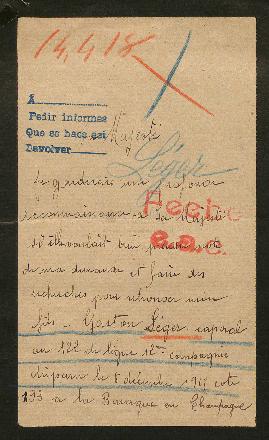 14,4,18
A
Pedir informes
Que se hace así
Devolver
Majesté
Léger
Je garderais une profonde
Hecho
reconnaissance à Sa Majesté
s'il voulait bien prendre note
e.a.c.
de ma demande et faire des
recherches pour retrouver mon
fils Gaston Léger caporal
au 122 de ligne 12me compagnie
disparu le 8 décembre 1914 cote
193 à la Baraque en Champagne